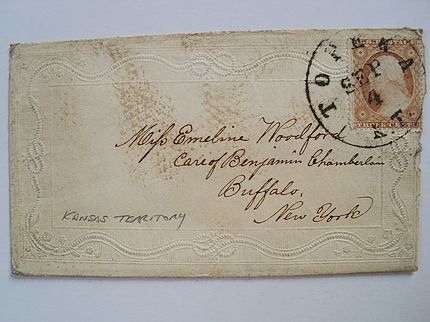 TOPEKA
SEP
4
K.T.
THREE CENTS
Miss Emeline Woodford
Care of Benjamin Chamberlain
Buffalo,
New York
KANSAS TERRITORY